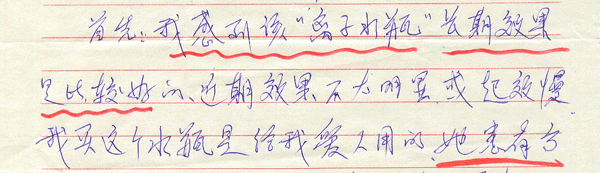 首先:我感到该“离子水瓶”长期效果
是比较好的、近期效果不大明显或起效慢
我买这个水瓶是给我爱人用的,她患有高